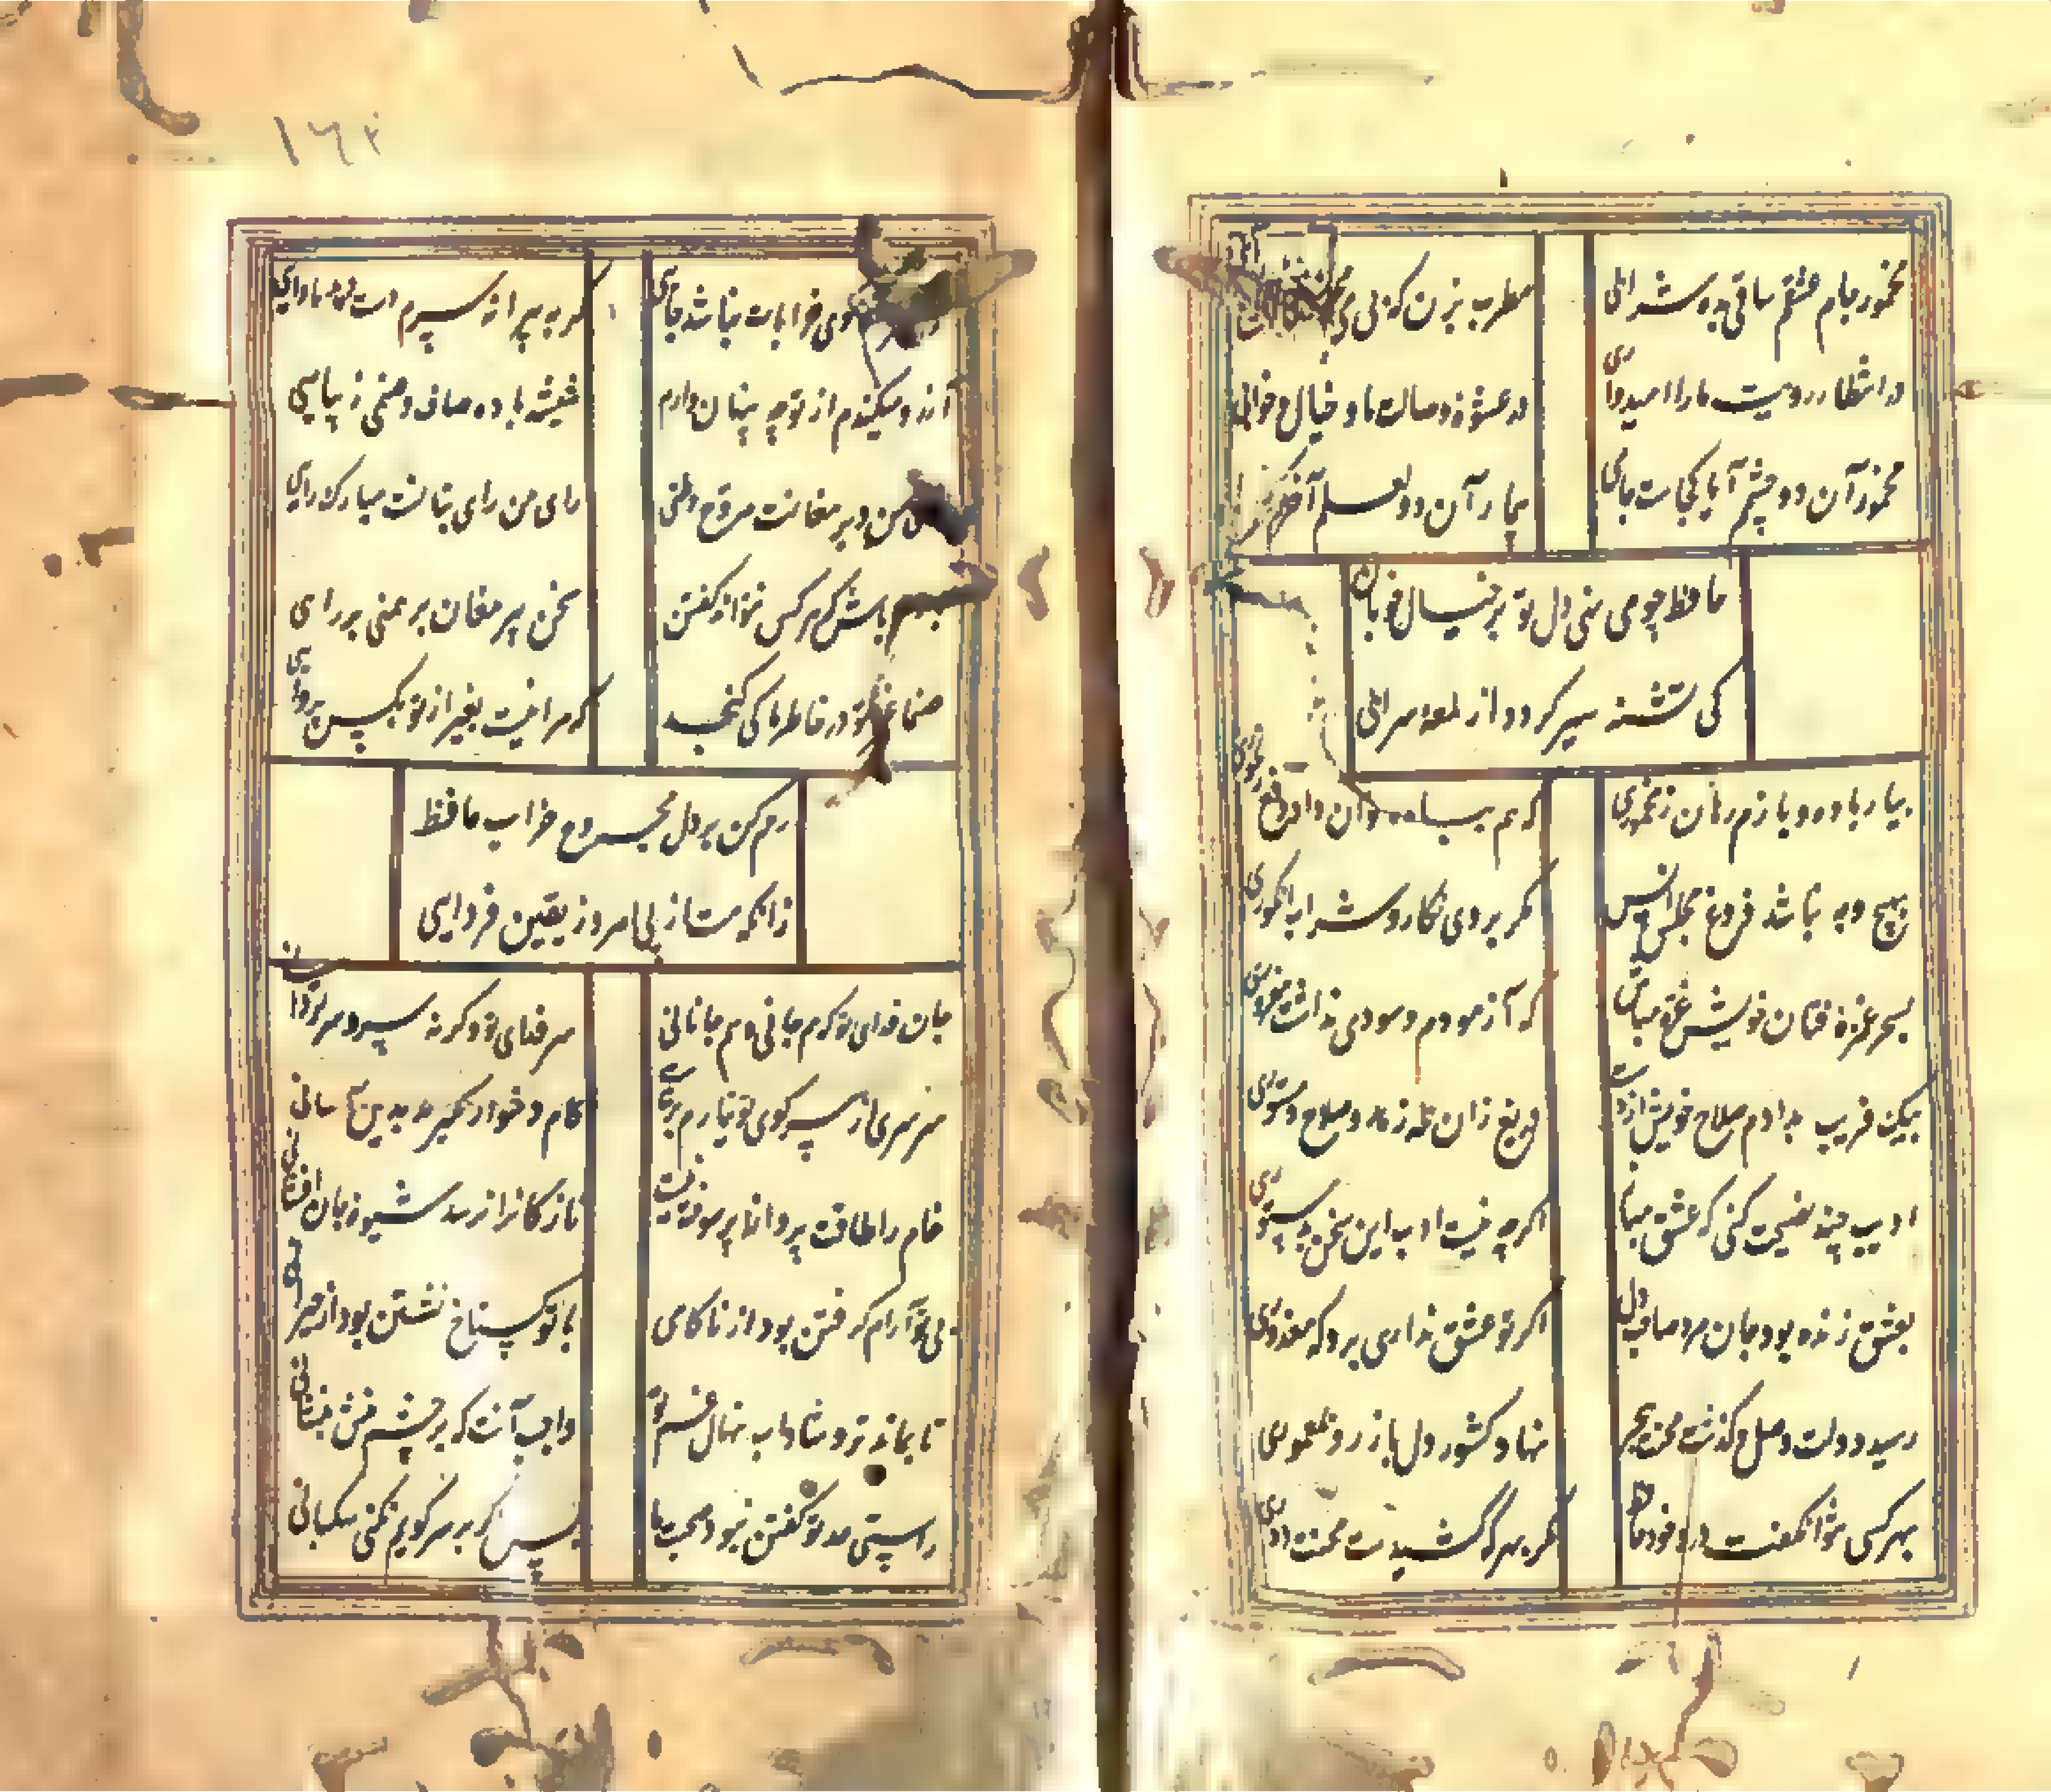 مخمور جام عشقم ساقی بده شرابی
مطرب بزن که بی می
در انتظار رویت ما را امیدواری
در عشوه وصالت ما و خیال و خوابی
مخمور آن دو چشم آیا کجاست جامی
بیمار آن دو لعلم آخر
حافظ چو می نهی دل تو بر خیال خوبان
کی تشنه سیر گردد از لمعه سرابی
بیار باده و بازم رهان ز مخموری
که هم بباده توان
بهیچ وجه نباشد فروغ مجلس انس
مگر بروی نگار و شراب انگوری
بسحر غمزه فتان خویش غره مباش
که آزمودم و سودی نداشت مغروری
بیک فریب بدادم صلاح خویش از دست
دریغ زان همه زهد و صلاح و مستوری
ادیب چند نصیحت کنی که عشق مباز
اگر چه نیست ادب این سخن بدستوری
بعشق زنده بود جان مرد صاحب دل
اگر تو عشق نداری برو که معذوری
رسید دولت وصل و گذشت محنت هجر
نهاد کشور دل باز رو بمعموری
بهر کسی نتوان گفت درد خود حافظ
مگر بهر که کشیدست محنت دوری
۱۶۳
کوی خرابات نباشد جایی
گر به پیرانه سرم دست دهد ماوایی
آرزو میکندم از تو چه پنهان دارم
شیشه باده صاف و صنمی زیبایی
من دیر مغانست مروح وطنی
رای من رای بتانست مبارک رایی
باش که هر کس نتواند گفتن
سخن پیر مغان بر صنمی بر رایی
صنما غیر تو در خاطر ما کی گنجد
که مرا نیست بغیر از تو بکس پروایی
رحم کن بر دل مجروح خراب حافظ
زانکه هست از پی امروز یقین فردایی
جان فدای تو که هم جانی و هم جانانی
سر فدای تو
سرسری از سر کوی تو نیارم برخاست
کار دشوار نگیرند بدین آسانی
خام را طاقت پروانه پر سوخته نیست
نازکان را نرسد شیوه جان افشانی
بی تو آرام گرفتن بود از ناکامی
با تو گستاخ نشستن بود از حیرانی
تا بماند تر و شاداب نهال غم تو
واجب آنست که بر چشم منش بنشانی
راستی حد تو گفتن نبود صحبت ما
بس که بر سر کویم نکنی سگبانی